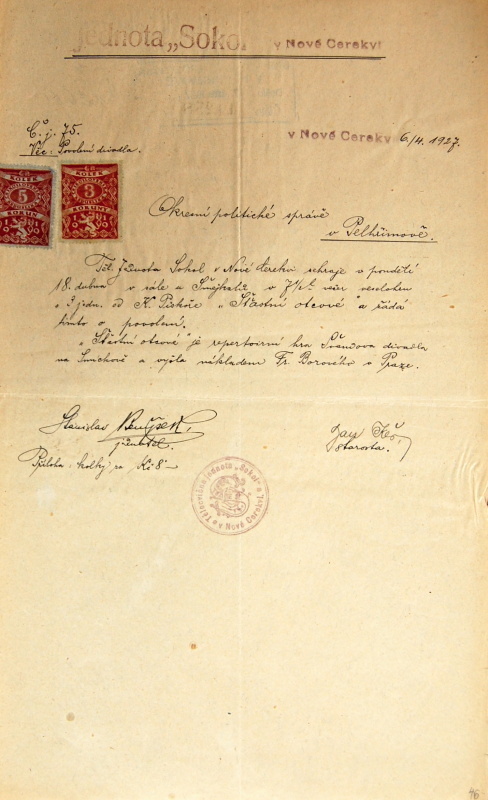 Jednota „Sokol" v Nové Cerekvi
v Nové Cerekvi 6/4. 1927.
Č. j. 75.
Věc: Povolení divadla.
KOLEK
5
KORUN
19 20
KOLEK
3
KORUN
19 20
Okresní politické správě
v Pelhřimově.
Těl. Jednota Sokol v Nové Cerekvi sehraje v pondělí
18. dubna v sále u v 7½ več. veselohru
o 3 jedn. od K. Piskoře „Šťastní otcové" a žádá
tímto o povolení.
„Šťastní otcové" je repertoirní hra Švandova divadla
na Smíchově a vyšla nákladem Fr. Borového v Praze.
Stanislav
jednatel.
Jan
starosta.
Příloha: kolky za Kč 8 –
Tělocvičná jednota „Sokol" v Nové Cerekvi.
46